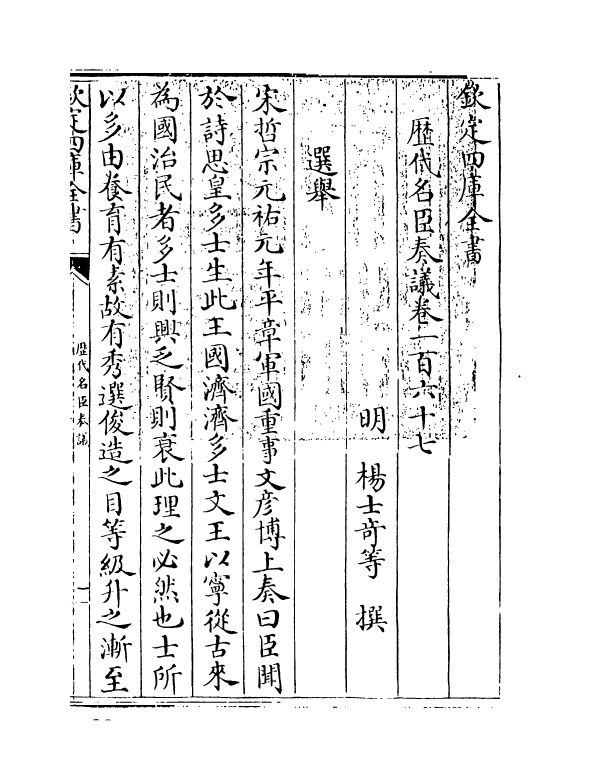 欽定四庫全書
歴代名臣奏議卷一百六十七
明　楊士奇等　撰
選舉
宋哲宗元祐元年平章軍國重事文彦博上奏曰臣聞
於詩思皇多士生此王國濟濟多士文王以寧從古來
為國治民者多士則興乏賢則衰此理之必然也士所
以多由養育有素故有秀選俊造之目等級升之漸至
欽定四庫全書
歴代名臣奏議